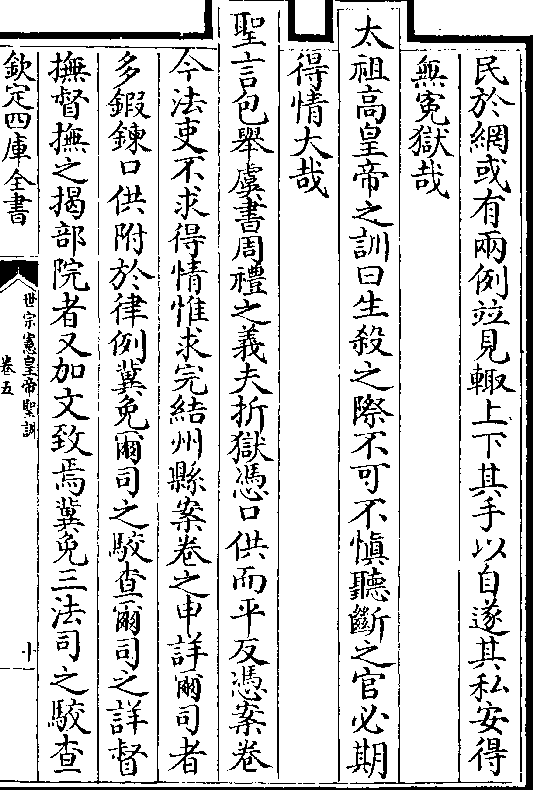 民於網或有兩例竝見輙上下其手以自遂其私安得
無寃獄哉
太祖高皇帝之訓曰生殺之際不可不愼聽斷之官必期
得情大哉
聖言包舉虞書周禮之義夫折獄憑口供而平反憑案卷
今法吏不求得情惟求完結州縣案卷之申詳爾司者
多鍜鍊口供附於律例冀免爾司之駮查爾司之詳督
撫督撫之揭部院者又加文致焉冀免三法司之駮查
欽定四庫全書
世宗憲皇帝聖訓
卷五
十